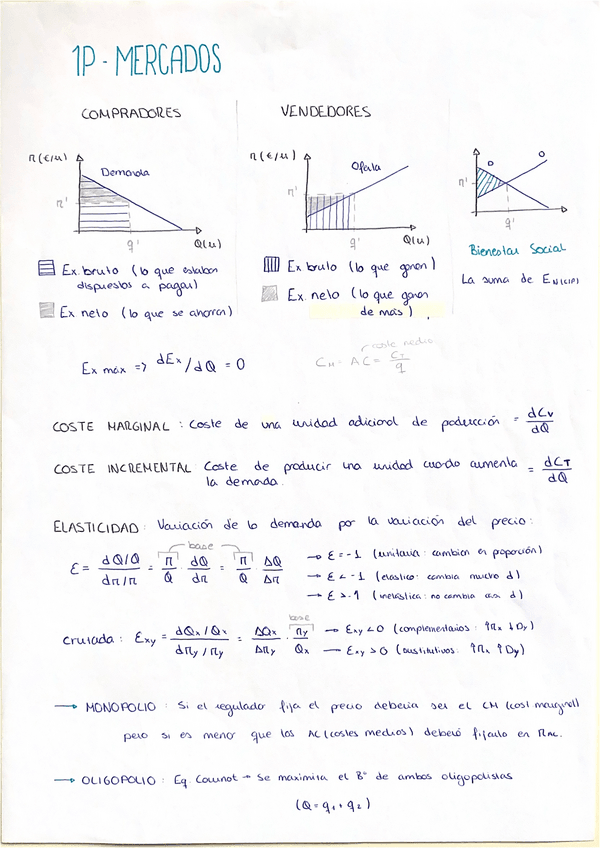 1P - MERCADOS
COMPRADORES
VENDEDORES
π (€/u)
Demanda
π'
q'
Q(u)
π (€/u)
Oferta
π'
q'
Q(u)
D
O
π'
q'
Ex. bruto (lo que estaban
dispuestos a pagar)
Ex neto (lo que se ahorran)
Ex bruto (lo que ganan)
Ex. neto (lo que ganan
de más)
Bienestar Social
La suma de E
Ex máx => dEx/dQ = 0
coste medio
CM = AC = CT/q
COSTE MARGINAL : Coste de una unidad adicional de producción = dCv/dQ
COSTE INCREMENTAL Coste de producir una unidad cuando aumenta = dCT/dQ
la demanda.
ELASTICIDAD : Variación de la demanda por la variación del precio:
base
ε = (dQ/Q)/(dπ/π) = π/Q · dQ/dπ = π/Q ΔQ/Δπ
→ ε = -1 (unitaria: cambian en proporción)
→ ε < -1 (elástica: cambia mucho d)
→ ε > -1 (inelástica: no cambia casi d)
base
Cruzada : Exy = (dQx/Qx)/(dπy/πy) = ΔQx/Δπy · πy/Qx
→ Exy < 0 (complementarios: ↑πx ↓Dy)
→ Exy > 0 (sustitutivos: ↑πx ↑Dy)
→ MONOPOLIO : Si el regulado fija el precio debería ser el CM (cost marginal)
pero si es menor que los AC (costes medios) deberá fijarlo en πAC.
→ OLIGOPOLIO : Eq. Cournot → Se maximiza el Bº de ambos oligopolistas
(Q = q1 + q2)